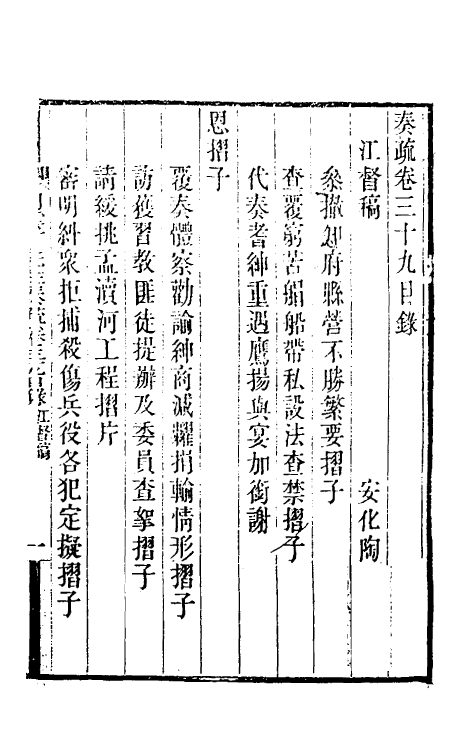 奏疏卷三十九目錄
江督稿　安化陶
叅撤知府縣營不勝繁要摺子
查覆窮苦蜎船帶私設法查禁摺子
代奏耆紳重遇鷹揚與宴加銜謝
恩摺子
覆奏體察勸諭紳商減糶捐輸情形摺子
訪獲習教匪徒提辦及委員查拏摺子
請緩挑孟瀆河工程摺片
審明糾衆拒捕殺傷兵役各犯定擬摺子
江督稿
一